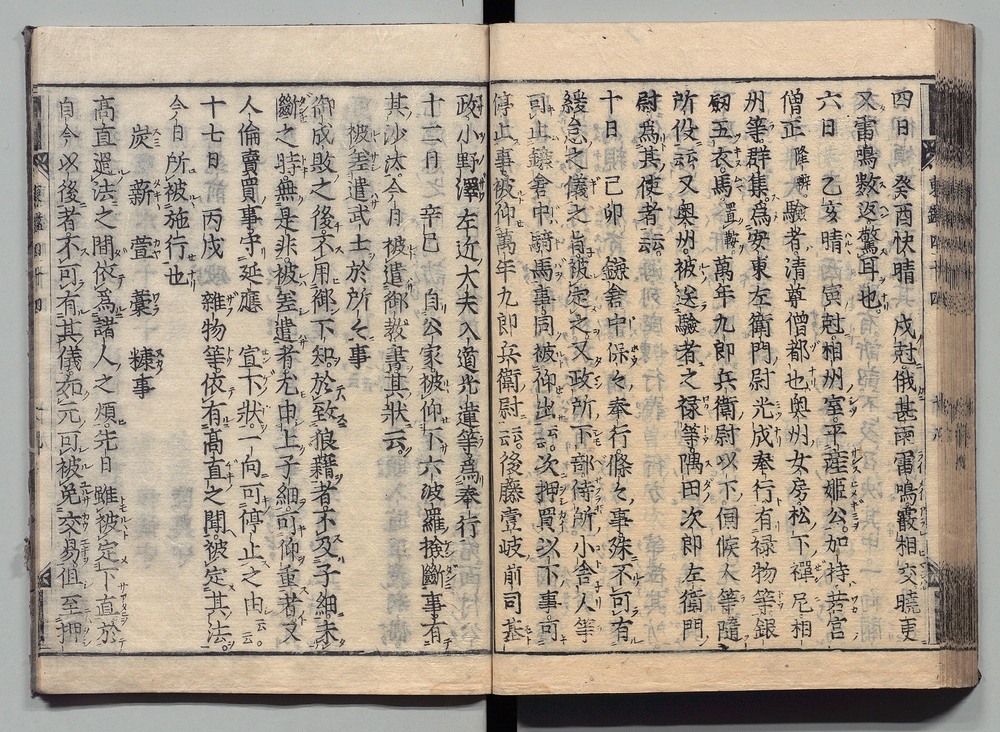 四日 癸酉快晴 戌尅俄甚雨雷鳴霰相交曉更
又雷鳴数返驚耳也
六日 乙亥晴 寅尅相州室平産姫公加持若宮
僧正隆辨驗者清尊僧都也奥州女房松下禪尼相
州等群集爲安東左衛門尉光成奉行有禄物等銀
釼五衣馬置鞍萬年九郎兵衛尉以下佪候人等隨
所役云云又奥州被送驗者之禄等隅田次郎左衛門
尉爲其使者云云
十日 己卯 鎌倉中保々奉行條々事殊不可有
緩怠之儀之旨被定之又政所下部侍所小舎人等
可止鎌倉中騎馬事同被仰出云云次押買以下事可
停止事被仰萬年九郎兵衛尉云云後藤壹岐前司基
政小野澤左近大夫入道光蓮等爲奉行
十二日 辛巳 自公家被仰下六波羅撿斷事有
其沙汰今日被遣御教書其状云
被差遣武士於所々事
御成敗之後不用御下知於致狼藉者不及子細未
斷之時無是非被差遣者尤申上子細可仰重者又
人倫賣買事守延應 宣下状一向可停止之由云云
十七日丙戌 雜物等依有髙直之聞被定其法
今日所被施行也
炭 薪 萱 藁 糠事
髙直過法之間依爲諸人之煩先日雖被定下直於
自今以後者不可有其儀如元可被免交易但至押
東鑑四十四